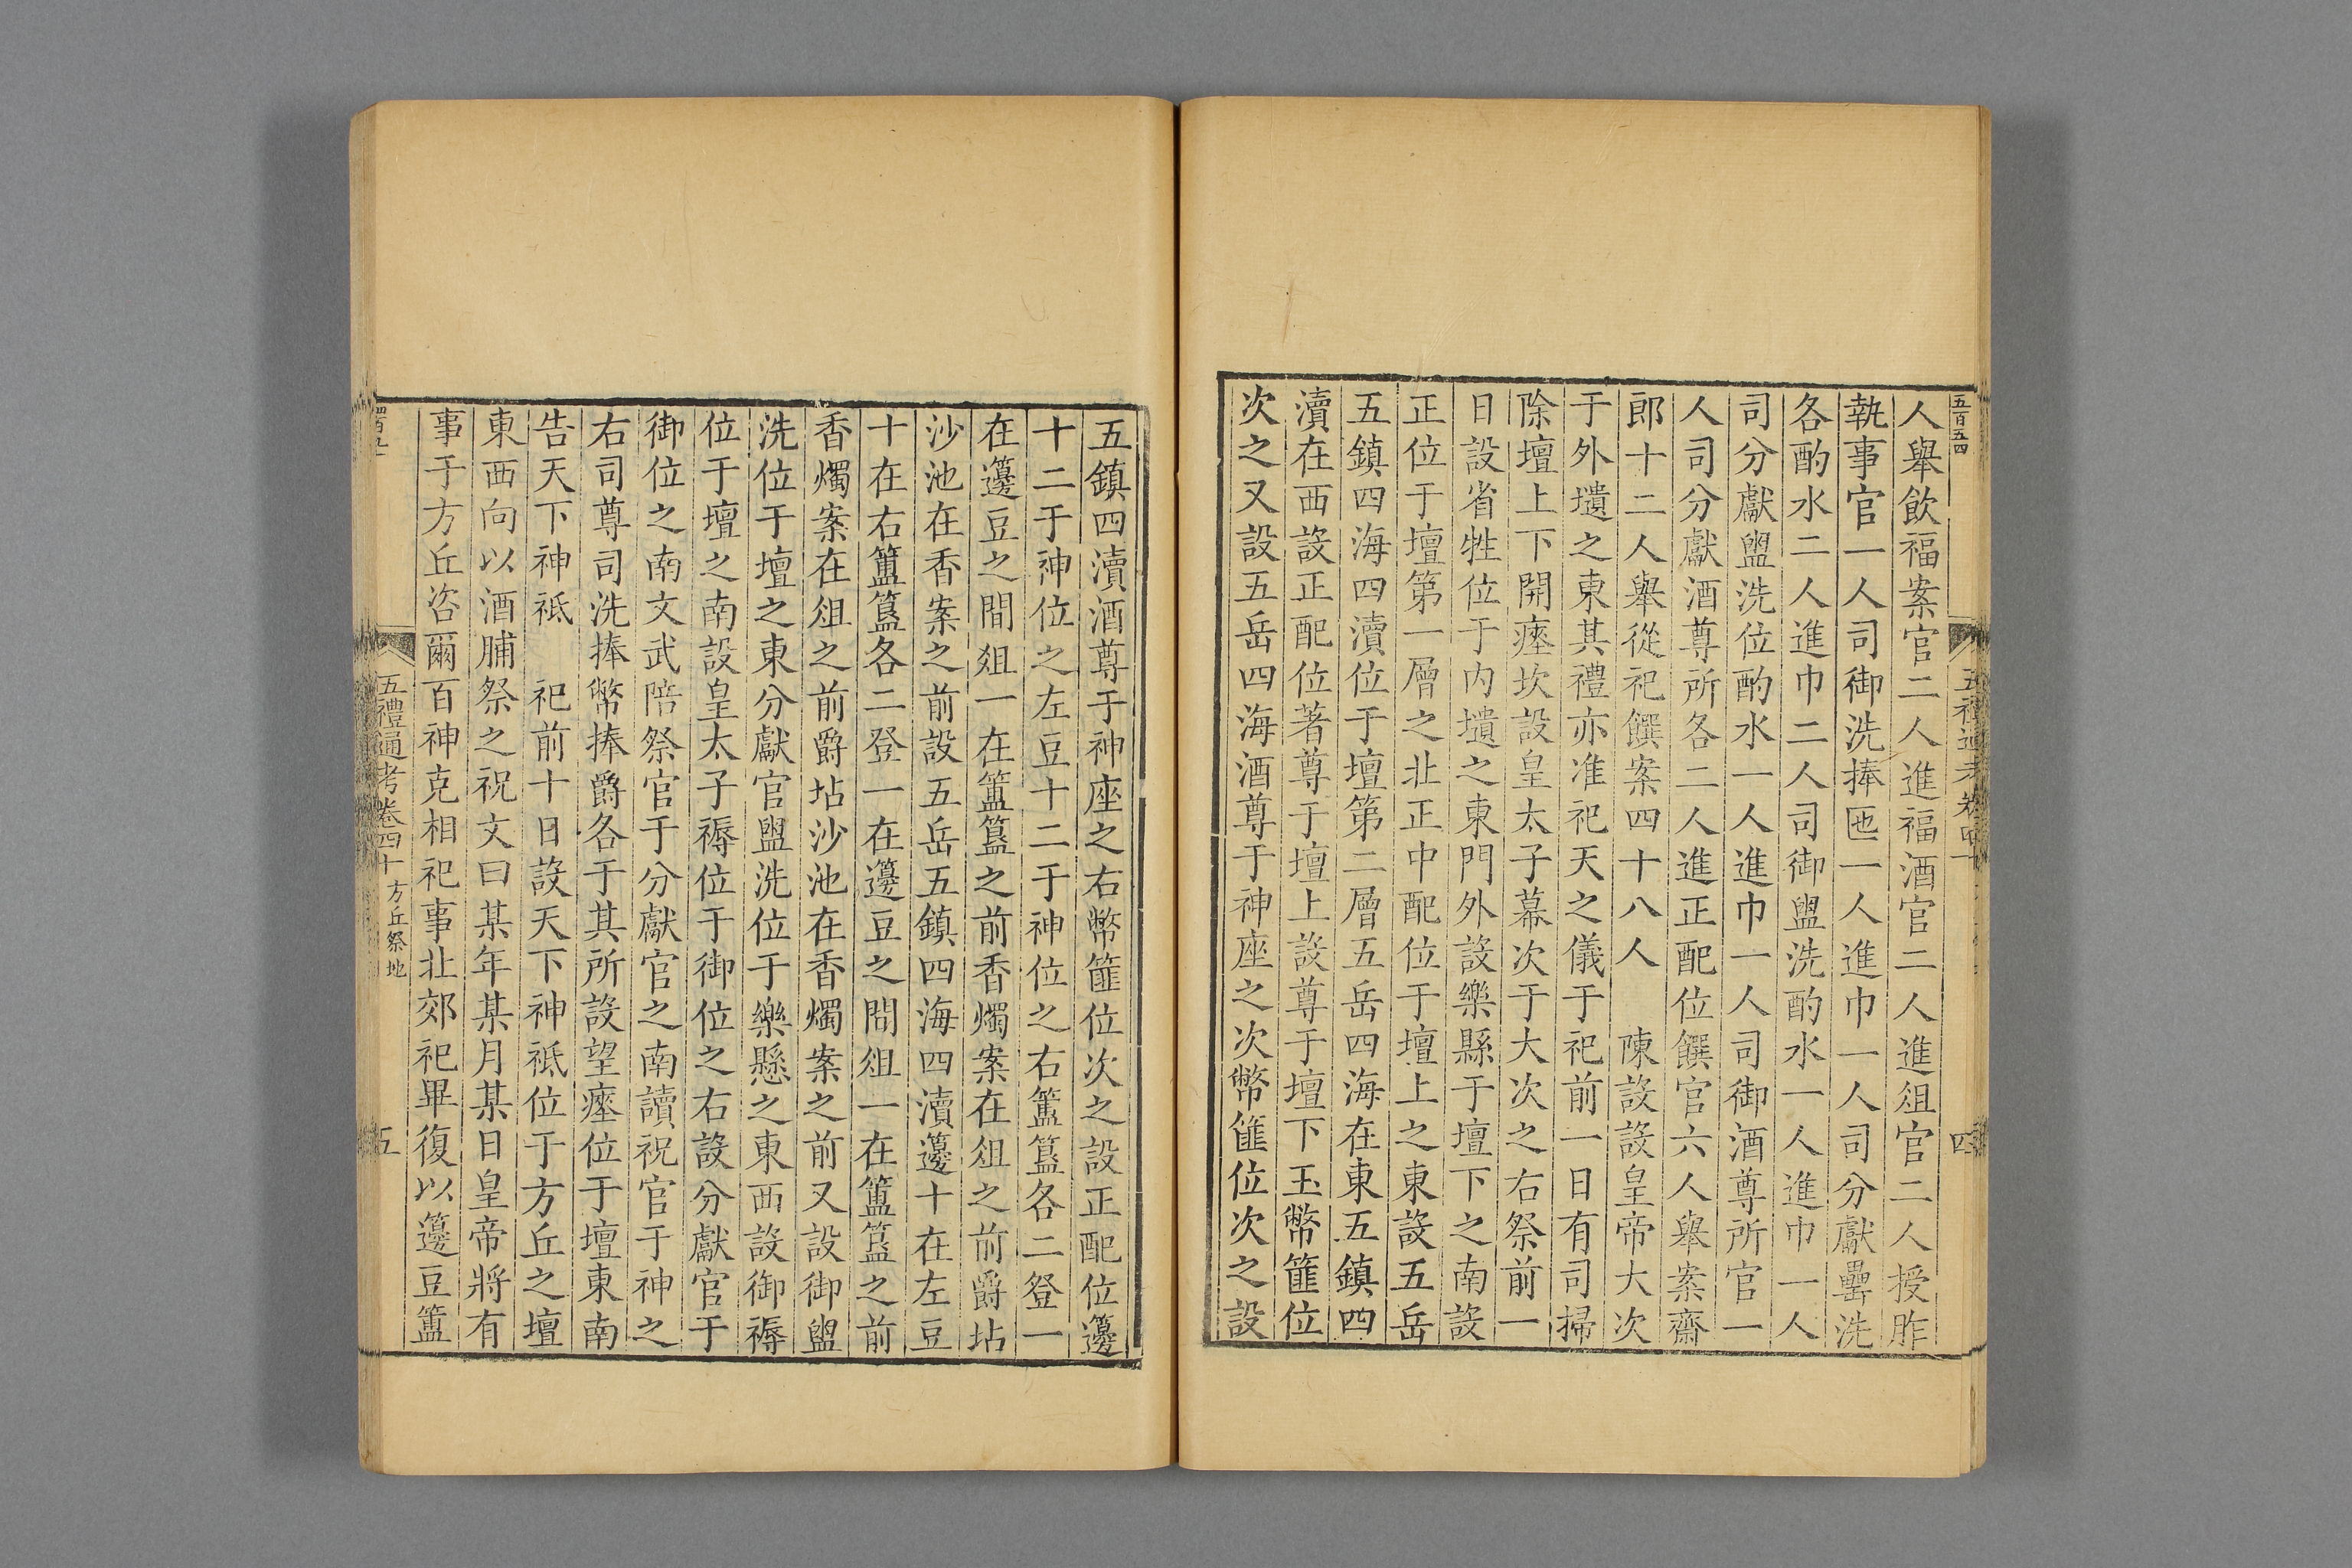 五百五四
五禮通考卷四十
四
人舉飲福案官二人進福酒官二人進俎官二人授胙
執事官一人司御洗捧匜一人進巾一人司分獻罍洗
各酌水二人進巾二人司御盥洗酌水一人進巾一人
司分獻盥洗位酌水一人進巾一人司御酒尊所官一
人司分獻酒尊所各二人進正配位饌官六人舉案齋
郎十二人舉從祀饌案四十八人　陳設設皇帝大次
于外壝之東其禮亦准祀天之儀于祀前一日有司掃
除壇上下開瘞坎設皇太子幕次于大次之右祭前一
日設省牲位于内壝之東門外設樂縣于壇下之南設
正位于壇第一層之北正中配位于壇上之東設五岳
五鎮四海四瀆位于壇第二層五岳四海在東五鎮四
瀆在西設正配位著尊于壇上設尊于壇下玉幣篚位
次之又設五岳四海酒尊于神座之次幣篚位次之設
五鎮四瀆酒尊于神座之右幣篚位次之設正配位籩
十二于神位之左豆十二于神位之右簠簋各二登一
在籩豆之間俎一在簠簋之前香燭案在俎之前爵坫
沙池在香案之前設五岳五鎮四海四瀆籩十在左豆
十在右簠簋各二登一在籩豆之間俎一在簠簋之前
香燭案在俎之前爵坫沙池在香燭案之前又設御盥
洗位于壇之東分獻官盥洗位于樂懸之東西設御褥
位于壇之南設皇太子褥位于御位之右設分獻官于
御位之南文武陪祭官于分獻官之南讀祝官于神之
右司尊司洗捧幣捧爵各于其所設望瘞位于壇東南
告天下神祇　祀前十日設天下神祇位于方丘之壇
東西向以酒脯祭之祝文曰某年某月某日皇帝將有
事于方丘咨爾百神克相祀事北郊祀畢復以籩豆簠
五禮通考卷四十　方丘祭地
五